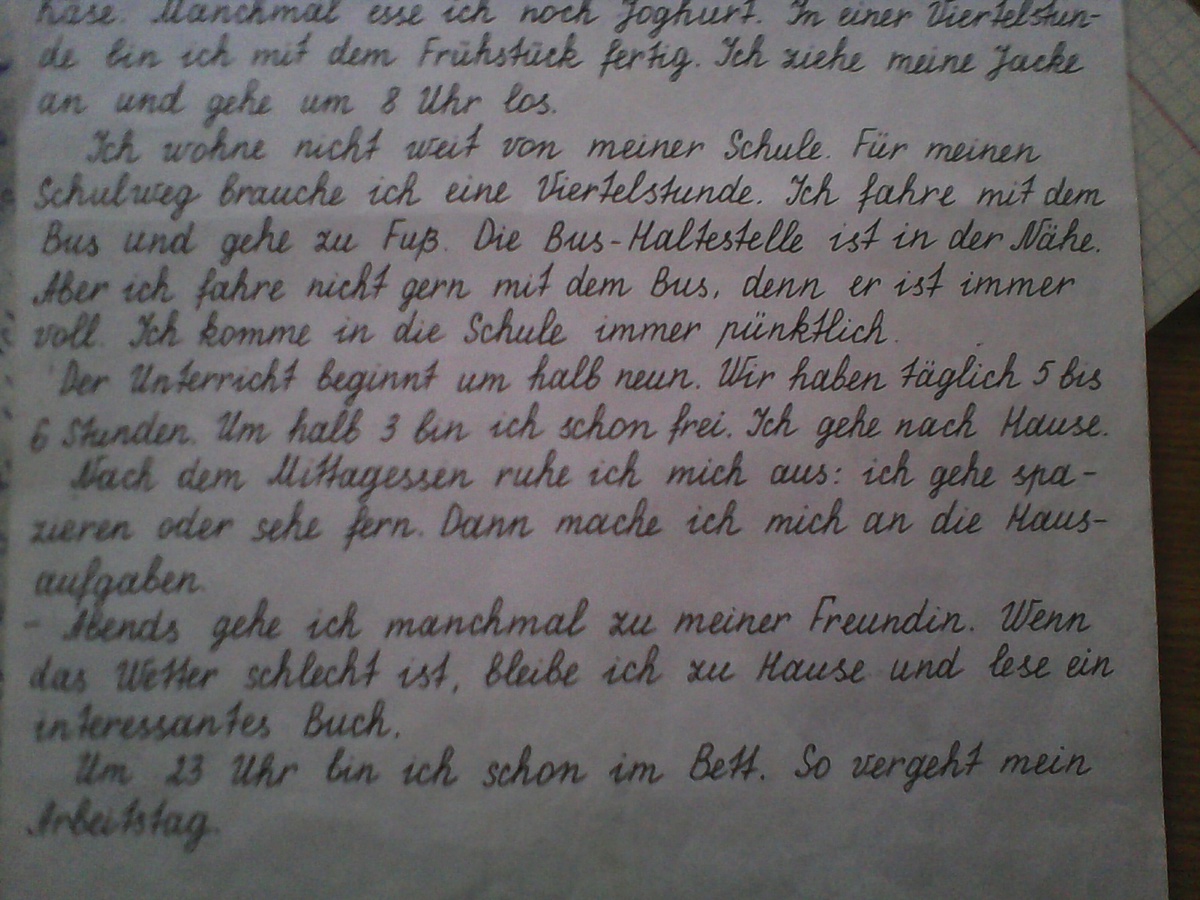 Käse. Manchmal esse ich noch Joghurt. In einer Viertelstun-
de bin ich mit dem Frühstück fertig. Ich ziehe meine Jacke
an und gehe um 8 Uhr los.
Ich wohne nicht weit von meiner Schule. Für meinen
Schulweg brauche ich eine Viertelstunde. Ich fahre mit dem
Bus und gehe zu Fuß. Die Bus-Haltestelle ist in der Nähe.
Aber ich fahre nicht gern mit dem Bus, denn er ist immer
voll. Ich komme in die Schule immer pünktlich.
Der Unterricht beginnt um halb neun. Wir haben täglich 5 bis
6 Stunden. Um halb 3 bin ich schon frei. Ich gehe nach Hause.
Nach dem Mittagessen ruhe ich mich aus: ich gehe spa-
zieren oder sehe fern. Dann mache ich mich an die Haus-
aufgaben.
- Abends gehe ich manchmal zu meiner Freundin. Wenn
das Wetter schlecht ist, bleibe ich zu Hause und lese ein
interessantes Buch.
Um 23 Uhr bin ich schon im Bett. So vergeht mein
Arbeitstag.